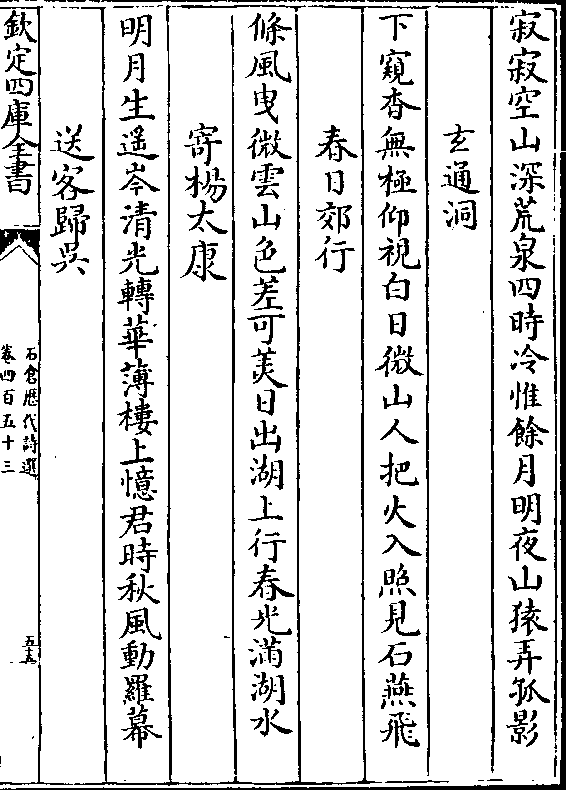 寂寂空山深荒泉四時冷惟餘月明夜山猿弄孤影
玄通洞
下窺杳無極仰視白日微山人把火入照見石燕飛
春日郊行
條風曳微雲山色差可美日出湖上行春光滿湖水
寄楊太康
明月生遥岑清光轉華薄樓上憶君時秋風動羅幕
送客歸吳
欽定四庫全書
石倉歷代詩選
卷四百五十三